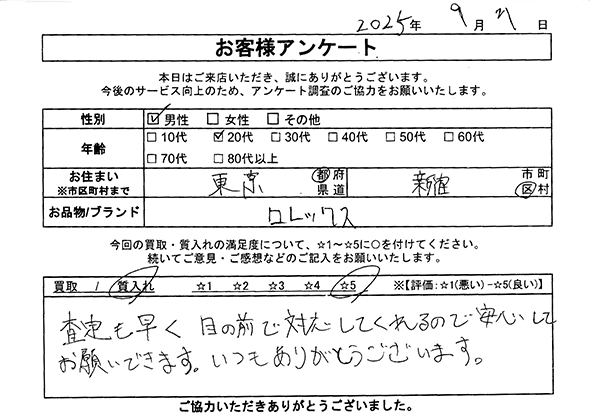 2025年 9月 21日
お客様アンケート
本日はご来店いただき、誠にありがとうございます。
今後のサービス向上のため、アンケート調査のご協力をお願いいたします。
性別 ☑男性 □女性 □その他
年齢 □10代 ☑20代 □30代 □40代 □50代 □60代
□70代 □80代以上
お住まい ※市区町村まで 東京 都府県道 新宿 市町区村
お品物/ブランド ロレックス
今回の買取・質入れの満足度について、☆1〜☆5に○を付けてください。
続いてご意見・ご感想などのご記入をお願いいたします。
買取 / 質入れ ☆1 ☆2 ☆3 ☆4 ☆5 ※【評価:☆1(悪い)-☆5(良い)】
査定も早く 目の前で対応してくれるので安心して
お願いできます。いつもありがとうございます。
ご協力いただきありがとうございました。